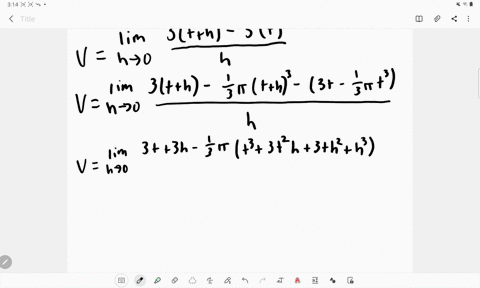 3:14
Title
V = lim h→0 3(t+h) - 3(t) / h
V = lim h→0 3(t+h) - 1/3 π (t+h)^3 - (3t - 1/3 π t^3) / h
V = lim h→0 3t + 3h - 1/3 π (t^3 + 3t^2h + 3th^2 + h^3)